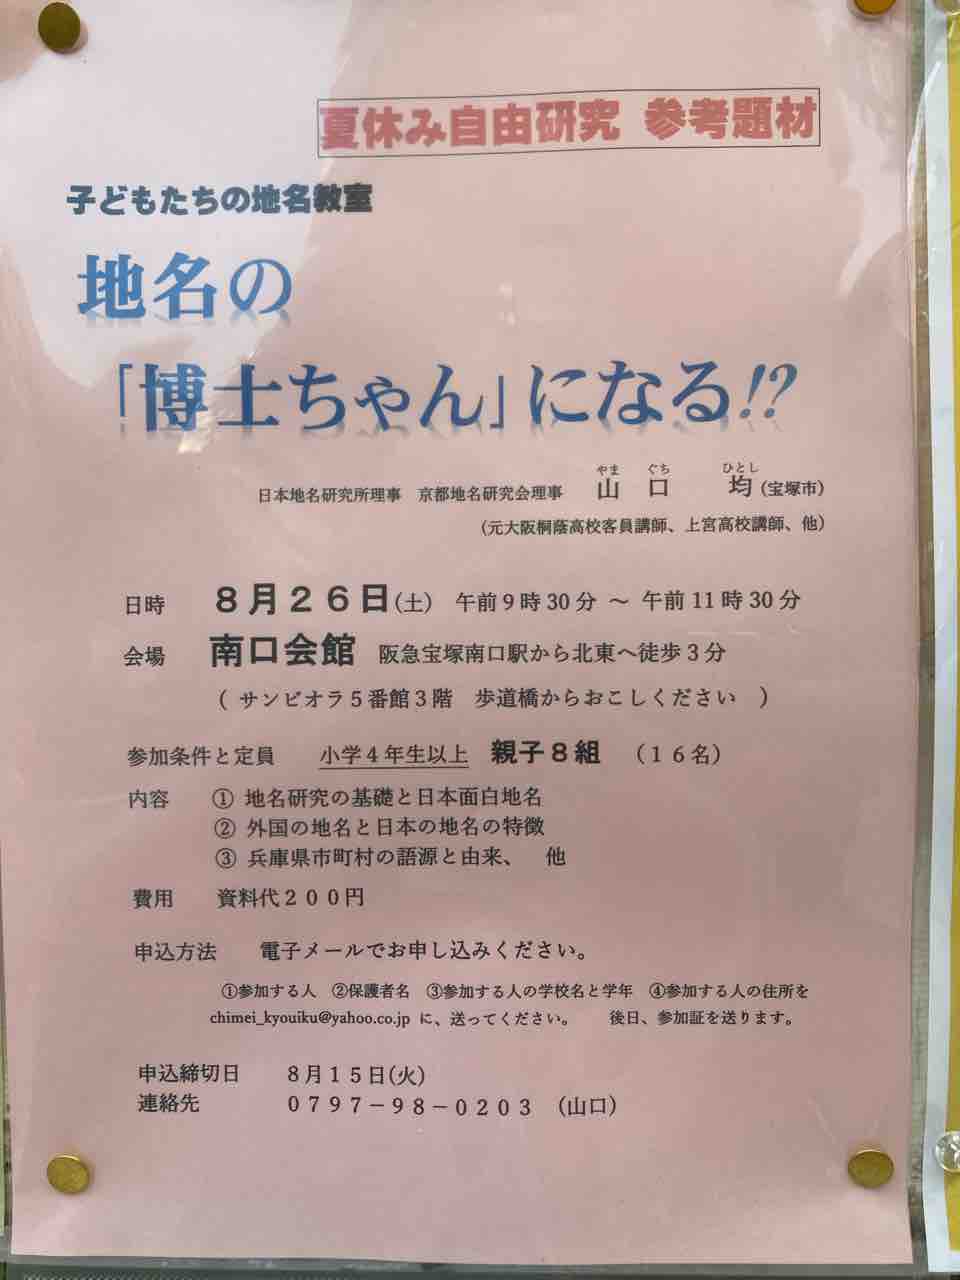 夏休み自由研究 参考題材
子どもたちの地名教室
地名の
「博士ちゃん」になる!?
日本地名研究所理事 京都地名研究会理事 山口 均(宝塚市)
やま ぐち ひとし
(元大阪桐蔭高校客員講師、上宮高校講師、他)
日時 8月26日(土) 午前9時30分 ~ 午前11時30分
会場 南口会館 阪急宝塚南口駅から北東へ徒歩3分
( サンビオラ5番館3階 歩道橋からおこしください )
参加条件と定員 小学4年生以上 親子8組 (16名)
内容 ① 地名研究の基礎と日本面白地名
② 外国の地名と日本の地名の特徴
③ 兵庫県市町村の語源と由来、 他
費用 資料代200円
申込方法 電子メールでお申し込みください。
①参加する人 ②保護者名 ③参加する人の学校名と学年 ④参加する人の住所を
chimei_kyouiku@yahoo.co.jp に、送ってください。 後日、参加証を送ります。
申込締切日 8月15日(火)
連絡先 0797-98-0203 (山口)